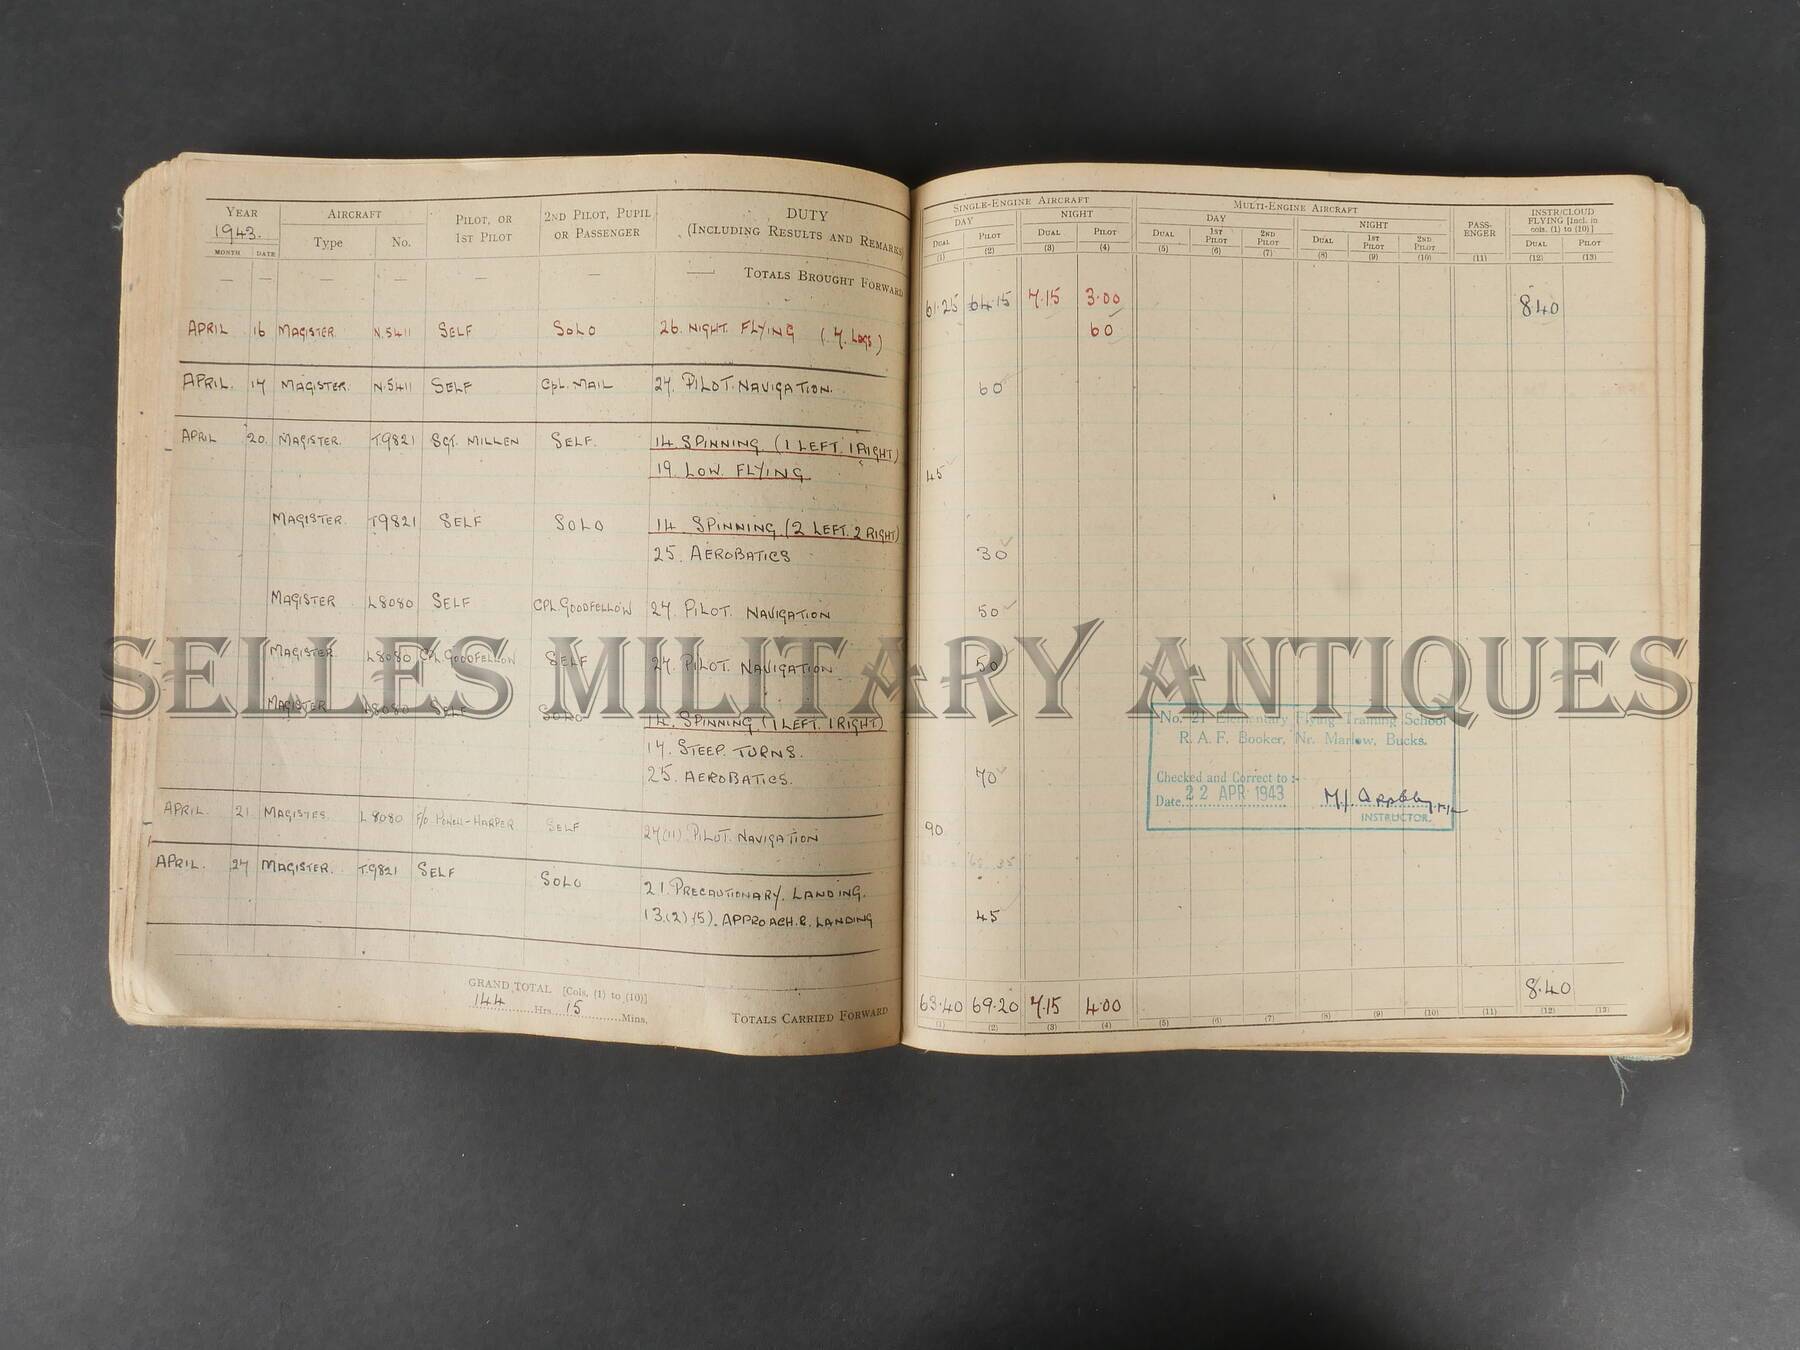 YEAR AIRCRAFT PILOT, OR 1ST PILOT 2ND PILOT, PUPIL OR PASSENGER DUTY (INCLUDING RESULTS AND REMARKS)
1943. Type No.
MONTH DATE
SINGLE-ENGINE AIRCRAFT MULTI-ENGINE AIRCRAFT PASS-ENGER INSTR/CLOUD FLYING [Incl. in cols. (1) to (10)]
DAY NIGHT DAY NIGHT
DUAL PILOT DUAL PILOT DUAL 1ST PILOT 2ND PILOT DUAL 1ST PILOT 2ND PILOT DUAL PILOT
(1) (2) (3) (4) (5) (6) (7) (8) (9) (10) (11) (12) (13)
— — — — — — — TOTALS BROUGHT FORWARD 61.25 64.15 7.15 3.00 8.40
APRIL 16 MAGISTER. N.5411 SELF SOLO 26. NIGHT FLYING (7. LOGS) 60
APRIL. 17 MAGISTER. N.5411 SELF CPL. MAIL 27. PILOT. NAVIGATION. 60
APRIL 20. MAGISTER. T.9821 SGT. MILLEN SELF. 14. SPINNING. (1 LEFT. 1 RIGHT)
19. LOW. FLYING 45
MAGISTER. T9821 SELF SOLO 14. SPINNING. (2 LEFT. 2 RIGHT)
25. AEROBATICS 30
MAGISTER L8080 SELF CPL. GOODFELLOW 27. PILOT. NAVIGATION 50
MAGISTER. L8080 CPL. GOODFELLOW SELF 27. PILOT. NAVIGATION 50
MAGISTER L8080 SELF SOLO 14. SPINNING. (1 LEFT. 1 RIGHT)
17. STEEP. TURNS.
25. AEROBATICS. 70
APRIL. 21. MAGISTER. L8080 F/O POWELL-HARPER SELF 27(11) PILOT. NAVIGATION 90
APRIL. 27 MAGISTER. T.9821 SELF SOLO 21. PRECAUTIONARY. LANDING.
13.(2)(5). APPROACH. & LANDING 45
GRAND TOTAL [Cols. (1) to (10)]
144 Hrs. 15 Mins.
TOTALS CARRIED FORWARD 63.40 69.20 7.15 4.00 8.40
(1) (2) (3) (4) (5) (6) (7) (8) (9) (10) (11) (12) (13)
No. 21 Elementary Flying Training School
R.A.F. Booker, Nr. Marlow, Bucks.
Checked and Correct to :-
Date 22 APR 1943
INSTRUCTOR.
SELLES MILITARY ANTIQUES